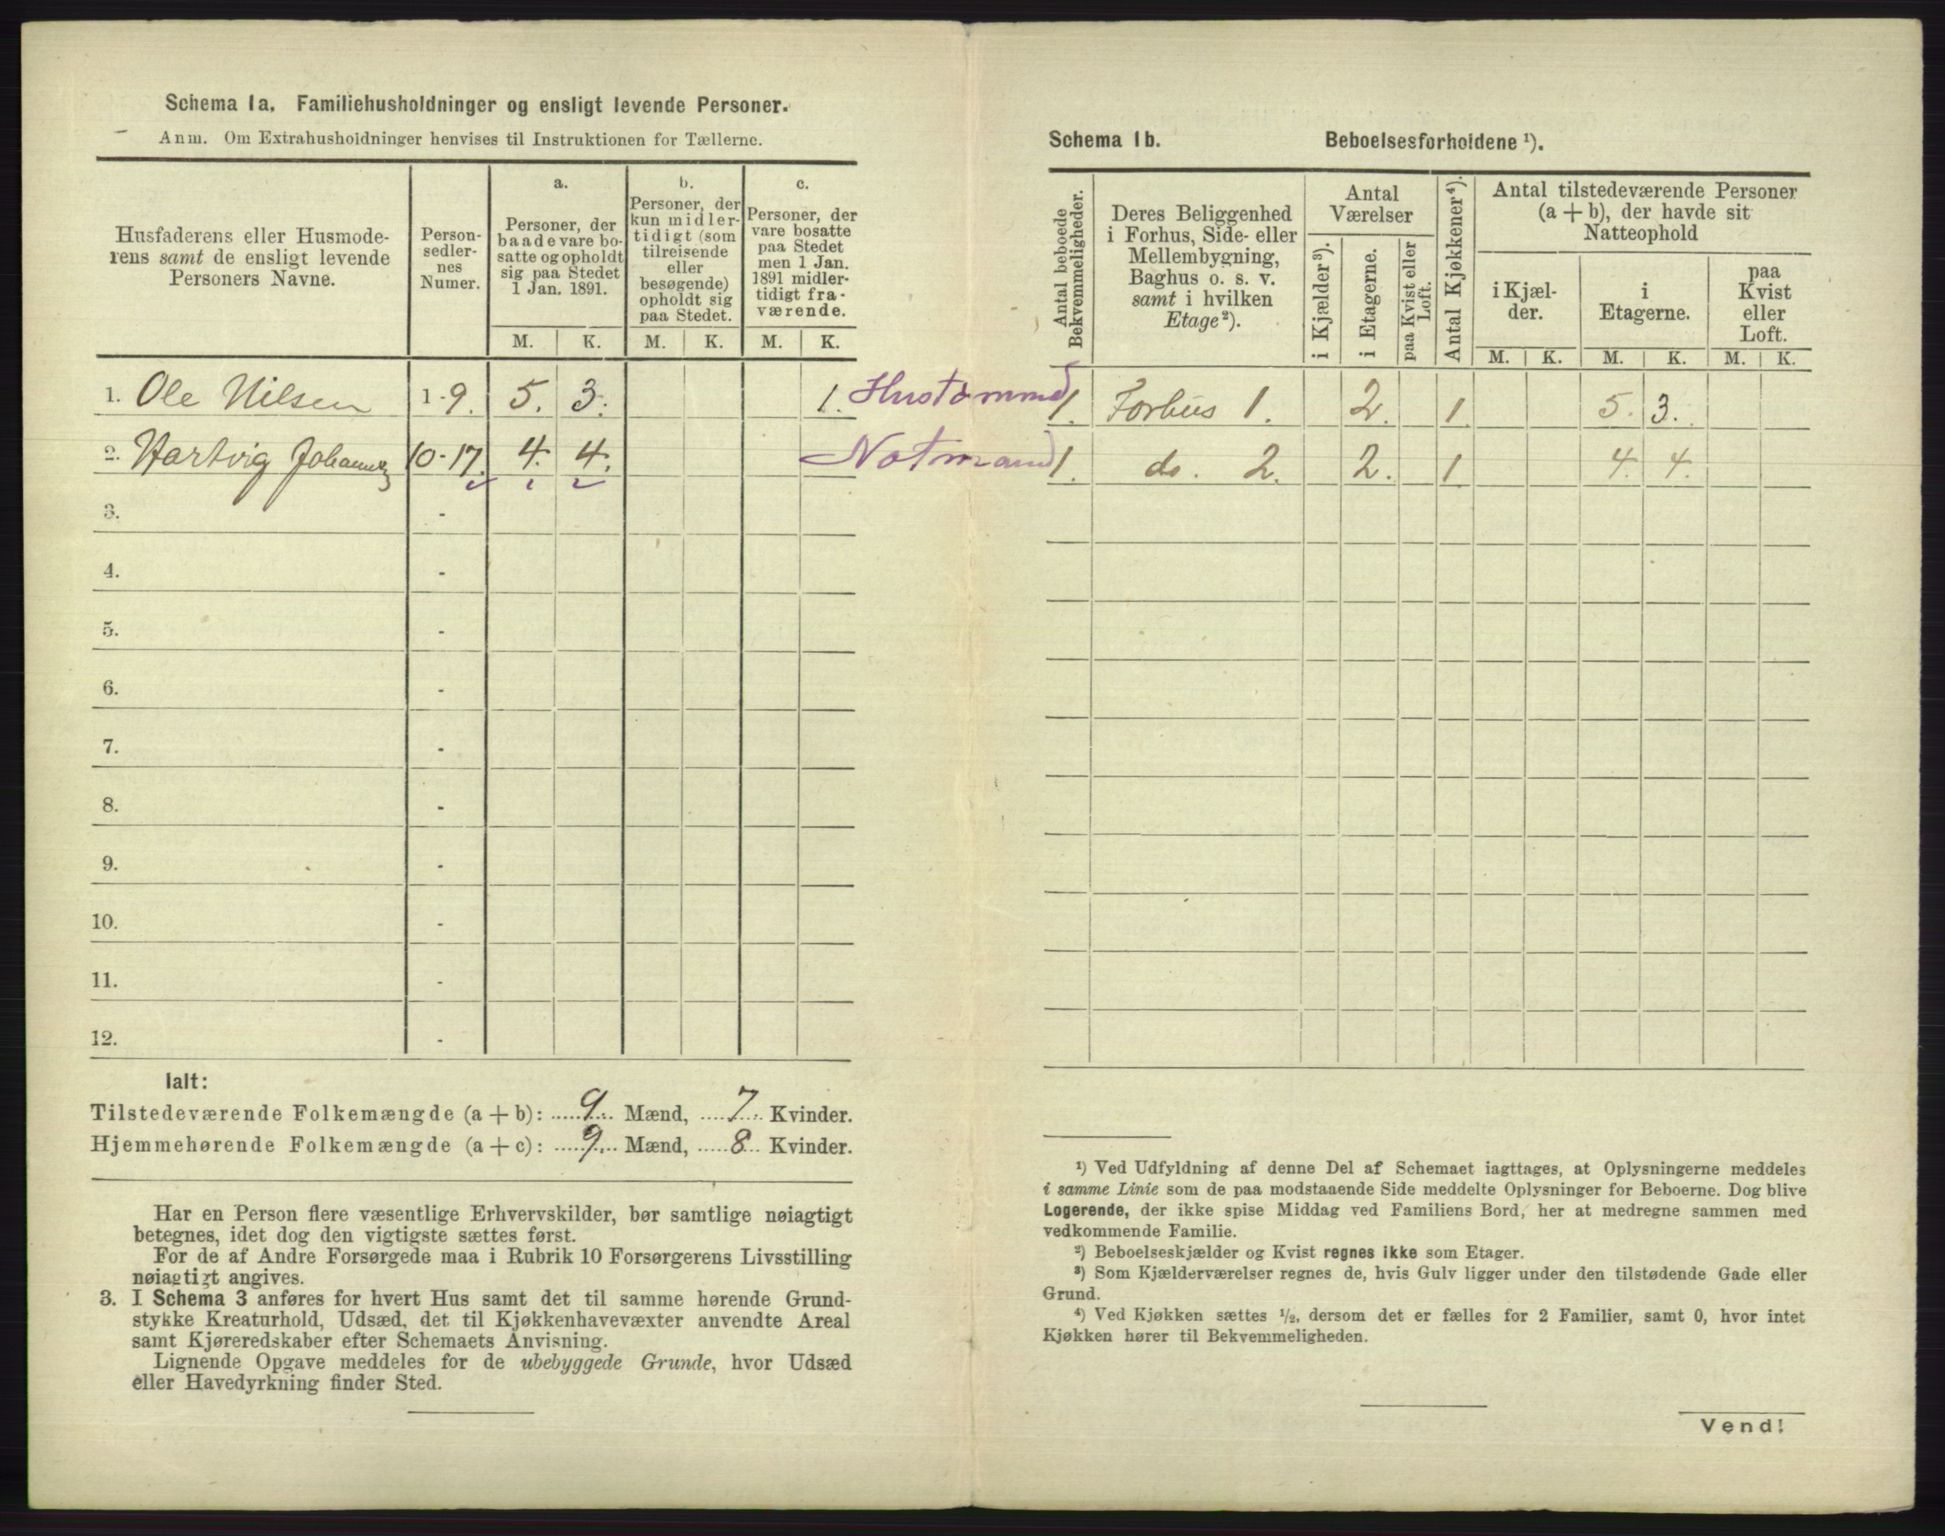 Schema 1a. Familiehusholdninger og ensligt levende Personer.
Anm. Om Extrahusholdninger henvises til Instruktionen for Tællerne.
Husfaderens eller Husmode-
rens samt de ensligt levende
Personers Navne.
Person-
sedler-
nes
Numer.
a.
Personer, der
baade vare bo-
satte og opholdt
sig paa Stedet
1 Jan. 1891.
b.
Personer, der
kun midler-
tidigt (som
tilreisende
eller
besøgende)
opholdt sig
paa Stedet.
c.
Personer, der
vare bosatte
paa Stedet
men 1 Jan.
1891 midler-
tidigt fra-
værende.
M. K. M. K. M. K.
1. Ole Nilsen 1-9. 5. 3. 1. Hustømmed
2. Hartvig Johannes 10-17. 4. 4. Notmand
3. -
4. -
5. -
6. -
7. -
8. -
9. -
10. -
11. -
12. -
Ialt:
Tilstedeværende Folkemængde (a + b): 9 Mænd, 7 Kvinder.
Hjemmehørende Folkemængde (a + c): 9 Mænd, 8 Kvinder.
Har en Person flere væsentlige Erhvervskilder, bør samtlige nøiagtigt
betegnes, idet dog den vigtigste sættes først.
For de af Andre Forsørgede maa i Rubrik 10 Forsørgerens Livsstilling
nøiagtigt angives.
3. I Schema 3 anføres for hvert Hus samt det til samme hørende Grund-
stykke Kreaturhold, Udsæd, det til Kjøkkenhavevæxter anvendte Areal
samt Kjøreredskaber efter Schemaets Anvisning.
Lignende Opgave meddeles for de ubebyggede Grunde, hvor Udsæd
eller Havedyrkning finder Sted.
Schema 1b. Beboelsesforholdene ¹).
Antal beboede
Bekvemmeligheder.
Deres Beliggenhed
i Forhus, Side- eller
Mellembygning,
Baghus o. s. v.
samt i hvilken
Etage ²).
Antal
Værelser
i Kjælder ³).
i Etagerne.
paa Kvist eller
Loft.
Antal Kjøkkener ⁴).
Antal tilstedeværende Personer
(a + b), der havde sit
Natteophold
i Kjæl-
der.
i
Etagerne.
paa
Kvist
eller
Loft.
M. K. M. K. M. K.
1. Forhus 1. 2. 1. 5. 3.
1. do. 2. 2. 1. 4. 4.
¹) Ved Udfyldning af denne Del af Schemaet iagttages, at Oplysningerne meddeles
i samme Linie som de paa modstaaende Side meddelte Oplysninger for Beboerne. Dog blive
Logerende, der ikke spise Middag ved Familiens Bord, her at medregne sammen med
vedkommende Familie.
²) Beboelseskjælder og Kvist regnes ikke som Etager.
³) Som Kjælderværelser regnes de, hvis Gulv ligger under den tilstødende Gade eller
Grund.
⁴) Ved Kjøkken sættes 1/2, dersom det er fælles for 2 Familier, samt 0, hvor intet
Kjøkken hører til Bekvemmeligheden.
Vend!